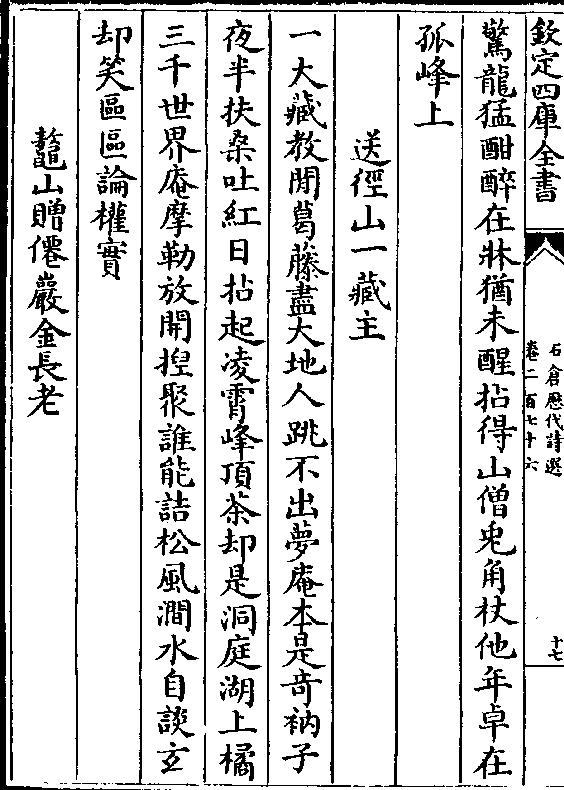 欽定四庫全書
石倉歷代詩選
卷二百七十六
十七
驚龍猛酣醉在牀猶未醒拈得山僧兎角杖他年卓在
孤峰上
送徑山一藏主
一大藏教閒葛藤盡大地人跳不出夢庵本是竒衲子
夜半扶桑吐紅日拈起凌霄峰頂茶却是洞庭湖上橘
三千世界庵摩勒放開揑聚誰能詰松風澗水自談玄
却笑區區論權實
鼇山贈僊巖金長老